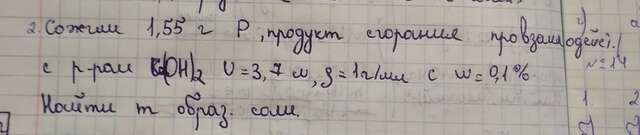 2. Сожгли 1,55 г P, продукт сгорания провзаимодейст.
с р-ром Ca(OH)₂ V=3,7 л, ρ=1г/мл с w=0,1%
Найти m образ. соли.
N=14
1 2